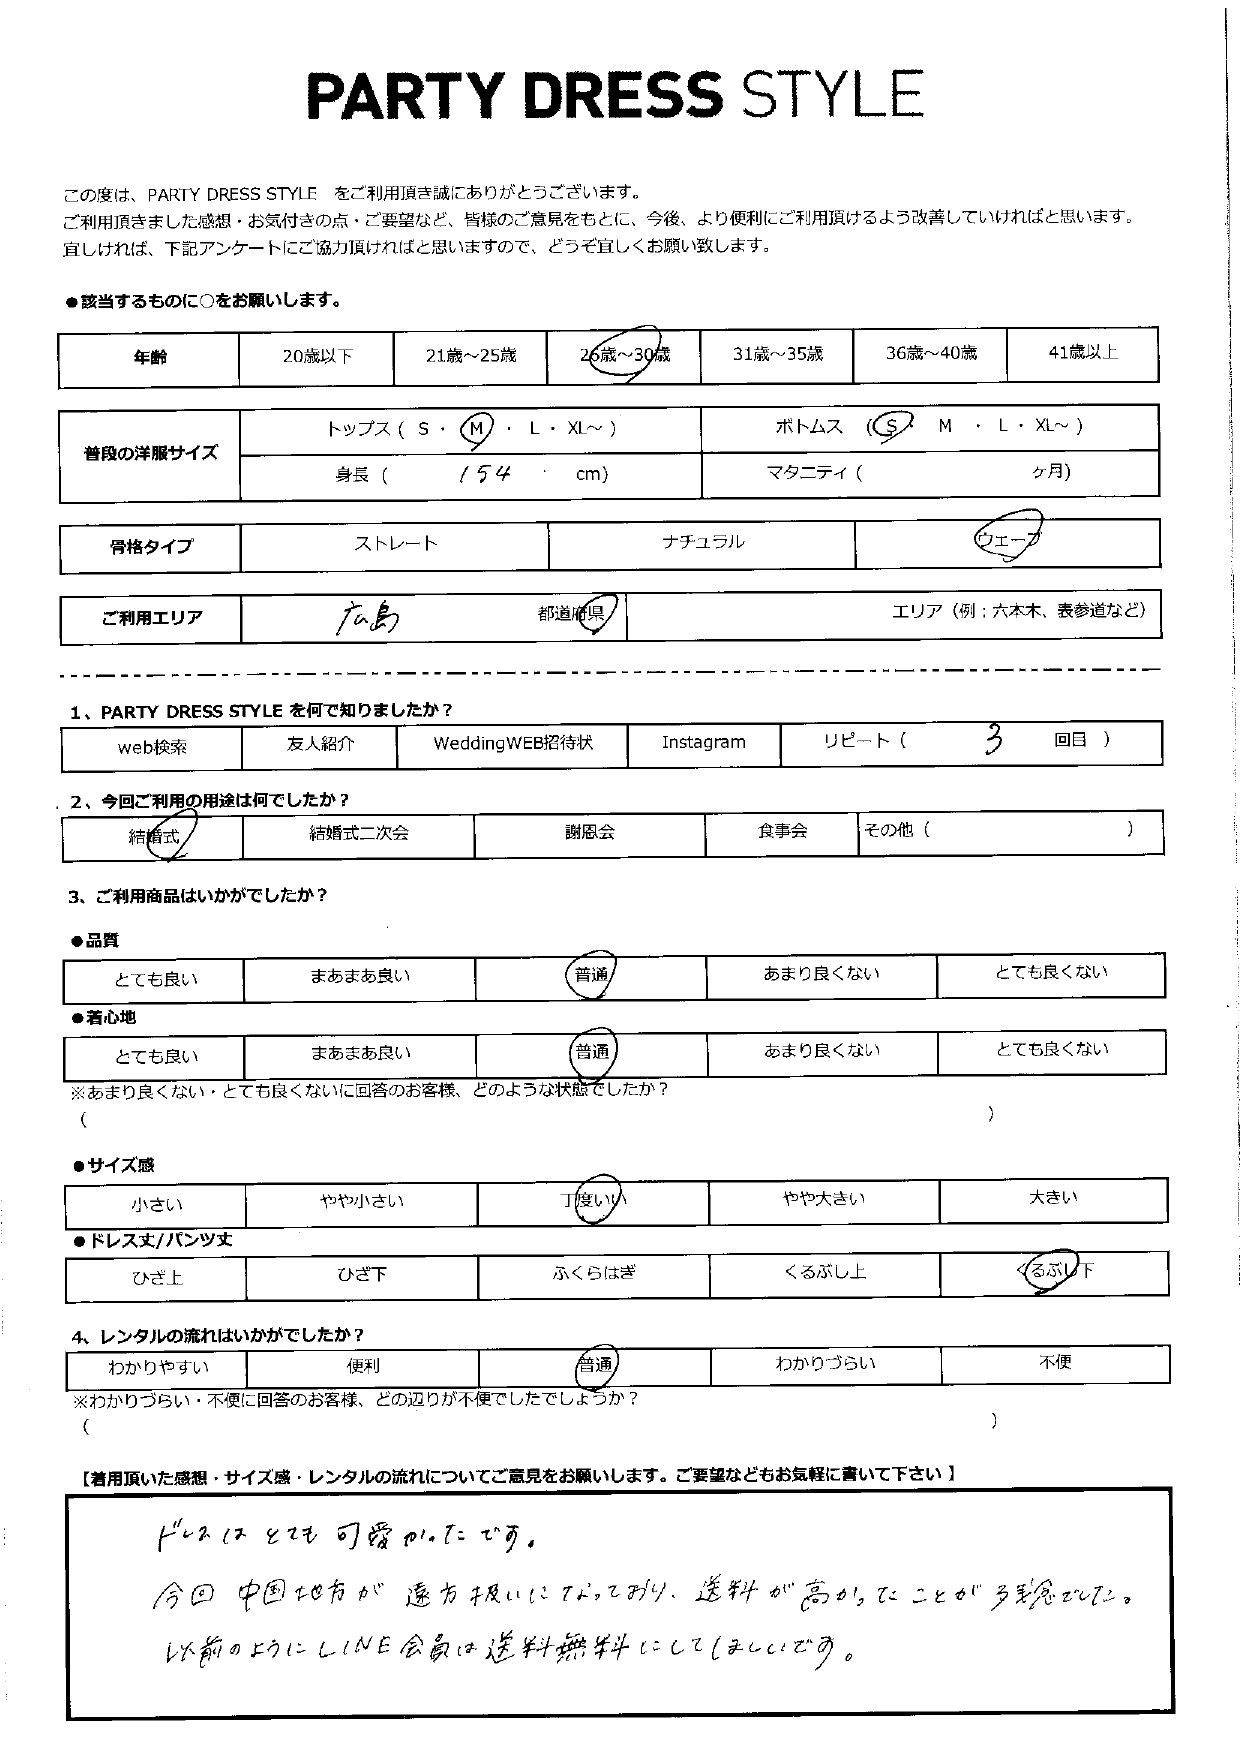 PARTY DRESS STYLE
この度は、PARTY DRESS STYLE をご利用頂き誠にありがとうございます。
ご利用頂きました感想・お気付きの点・ご要望など、皆様のご意見をもとに、今後、より便利にご利用頂けるよう改善していければと思います。
宜しければ、下記アンケートにご協力頂ければと思いますので、どうぞ宜しくお願い致します。
●該当するものに○をお願いします。
年齢 20歳以下 21歳～25歳 26歳～30歳 31歳～35歳 36歳～40歳 41歳以上
普段の洋服サイズ
トップス ( S ・ M ・ L ・ XL～ ) ボトムス ( S ・ M ・ L ・ XL～ )
身長 ( 154 cm) マタニティ ( ヶ月)
骨格タイプ ストレート ナチュラル ウェーブ
ご利用エリア 広島 都道府県 エリア（例；六本木、表参道など）
1、PARTY DRESS STYLE を何で知りましたか？
web検索 友人紹介 WeddingWEB招待状 Instagram リピート ( 3 回目 )
2、今回ご利用の用途は何でしたか？
結婚式 結婚式二次会 謝恩会 食事会 その他 ( )
3、ご利用商品はいかがでしたか？
●品質
とても良い まあまあ良い 普通 あまり良くない とても良くない
●着心地
とても良い まあまあ良い 普通 あまり良くない とても良くない
※あまり良くない・とても良くないに回答のお客様、どのような状態でしたか？
( )
●サイズ感
小さい やや小さい 丁度いい やや大きい 大きい
●ドレス丈/パンツ丈
ひざ上 ひざ下 ふくらはぎ くるぶし上 くるぶし下
4、レンタルの流れはいかがでしたか？
わかりやすい 便利 普通 わかりづらい 不便
※わかりづらい・不便に回答のお客様、どの辺りが不便でしたでしょうか？
( )
【着用頂いた感想・サイズ感・レンタルの流れについてご意見をお願いします。ご要望などもお気軽に書いて下さい 】
ドレスはとても可愛かったです。
今回 中国地方が 遠方扱いになっており、送料が高かったことが残念でした。
以前のようにLINE会員は送料無料にしてほしいです。